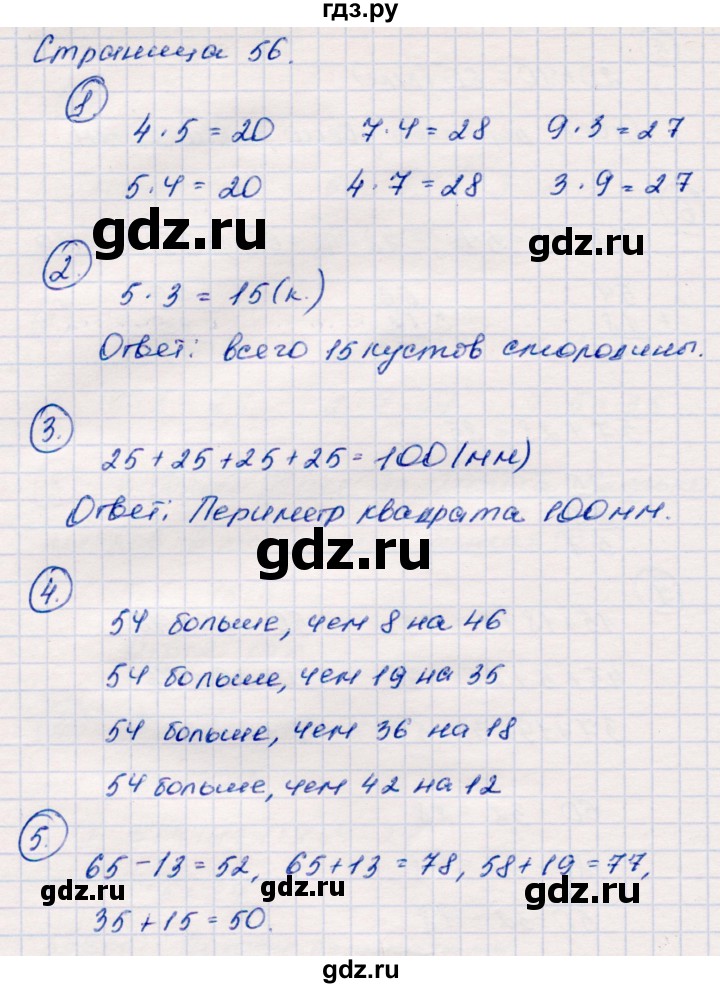 гдз.ру
Страница 56.
1
4 · 5 = 20 7 · 4 = 28 9 · 3 = 27
5 · 4 = 20 4 · 7 = 28 3 · 9 = 27
gdz.ru
gdz.ru
2.
5 · 3 = 15 (к.)
Ответ: всего 15 кустов смородины.
3.
25 + 25 + 25 + 25 = 100 (мм)
Ответ: Периметр квадрата 100 мм.
gdz.ru
4.
54 больше, чем 8 на 46
54 больше, чем 19 на 35
54 больше, чем 36 на 18
54 больше, чем 42 на 12
5.
65 - 13 = 52, 65 + 13 = 78, 58 + 19 = 77,
gdz.ru gdz.ru gdz.ru
35 + 15 = 50.
gdz.ru